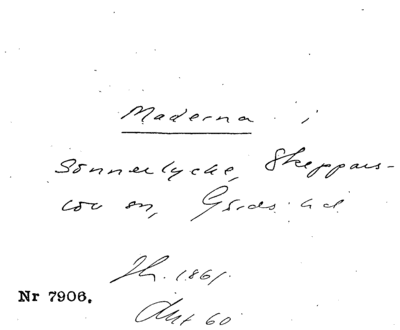 Maderna i
Sönnerlycke, Skeppars-
löv sn, Gärds hd
Jh. 1861.
Nr 7906.
60